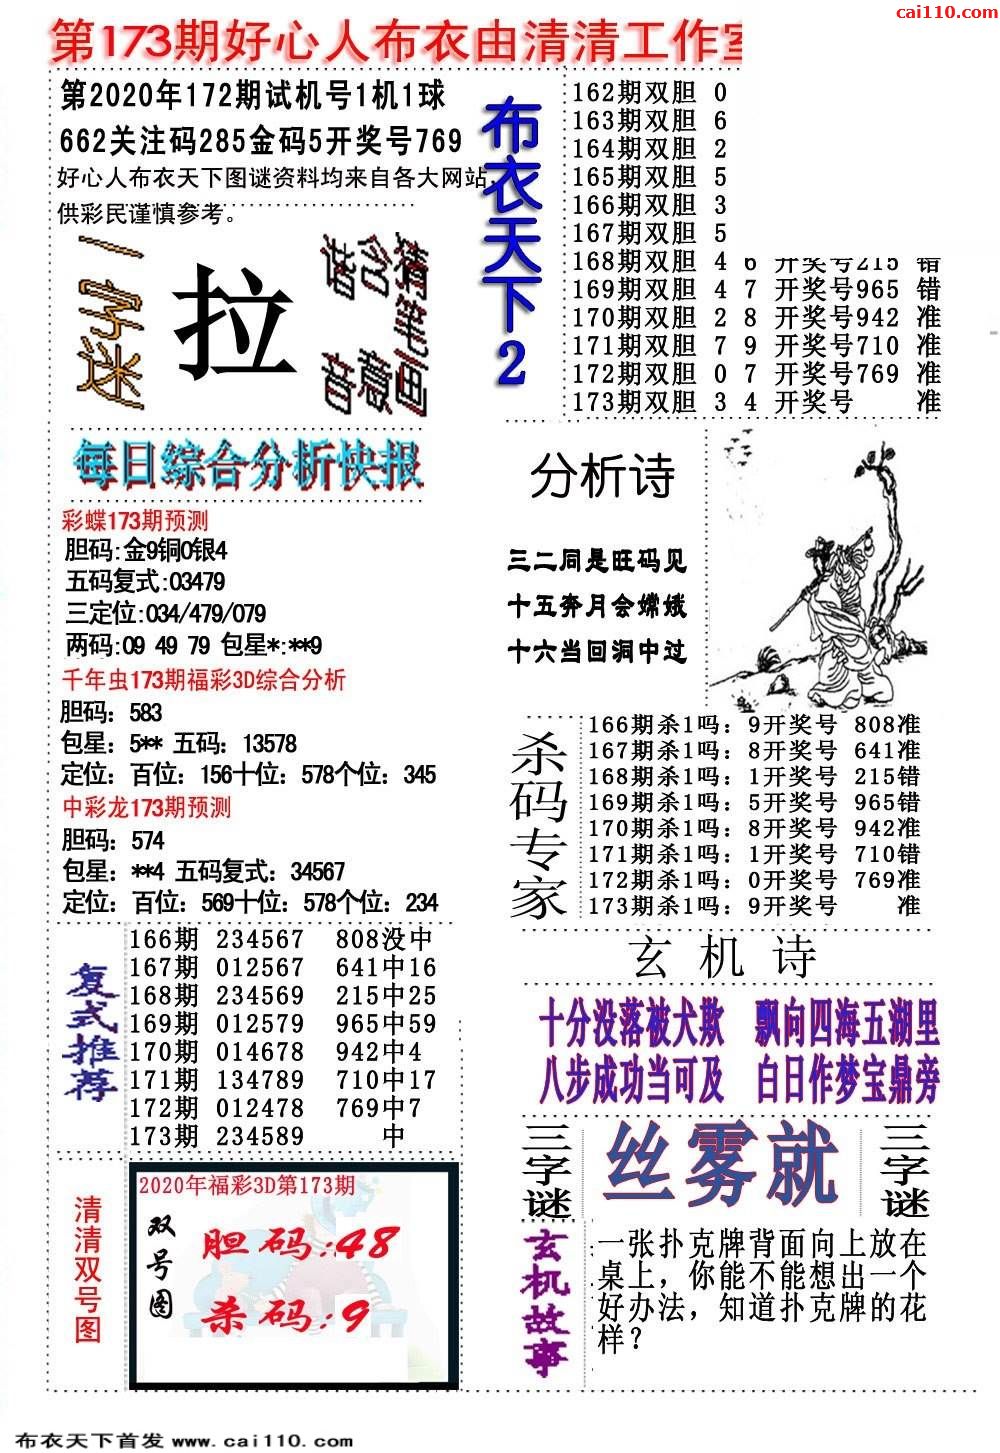 cai110.com
第173期好心人布衣由清清工作室
第2020年172期试机号1机1球
662关注码285金码5开奖号769
好心人布衣天下图谜资料均来自各大网站,
供彩民谨慎参考。
一字迷
拉
猜笔画
含意
谐音
布衣天下2
162期双胆 0
163期双胆 6
164期双胆 2
165期双胆 5
166期双胆 3
167期双胆 5
168期双胆 4 6 开奖号215 错
169期双胆 4 7 开奖号965 错
170期双胆 2 8 开奖号942 准
171期双胆 7 9 开奖号710 准
172期双胆 0 7 开奖号769 准
173期双胆 3 4 开奖号 准
每日综合分析快报
彩蝶173期预测
胆码:金9铜0银4
五码复式:03479
三定位:034/479/079
两码:09 49 79 包星*:**9
千年虫173期福彩3D综合分析
胆码：583
包星：5** 五码：13578
定位：百位：156十位：578个位：345
中彩龙173期预测
胆码：574
包星：**4 五码复式：34567
定位：百位：569十位：578个位：234
分析诗
三二同是旺码见
十五奔月会嫦娥
十六当回洞中过
杀码专家
166期杀1吗：9开奖号 808准
167期杀1吗：8开奖号 641准
168期杀1吗：1开奖号 215错
169期杀1吗：5开奖号 965错
170期杀1吗：8开奖号 942准
171期杀1吗：1开奖号 710错
172期杀1吗：0开奖号 769准
173期杀1吗：9开奖号 准
复式推荐
166期 234567 808没中
167期 012567 641中16
168期 234569 215中25
169期 012579 965中59
170期 014678 942中4
171期 134789 710中17
172期 012478 769中7
173期 234589 中
玄机诗
十分没落被犬欺 飘向四海五湖里
八步成功当可及 白日作梦宝鼎旁
三字谜
丝雾就
三字谜
清清双号图
2020年福彩3D第173期
双号图
胆码:48
杀码:9
玄机故事
一张扑克牌背面向上放在
桌上，你能不能想出一个
好办法，知道扑克牌的花
样？
布衣天下首发 www.cai110.com